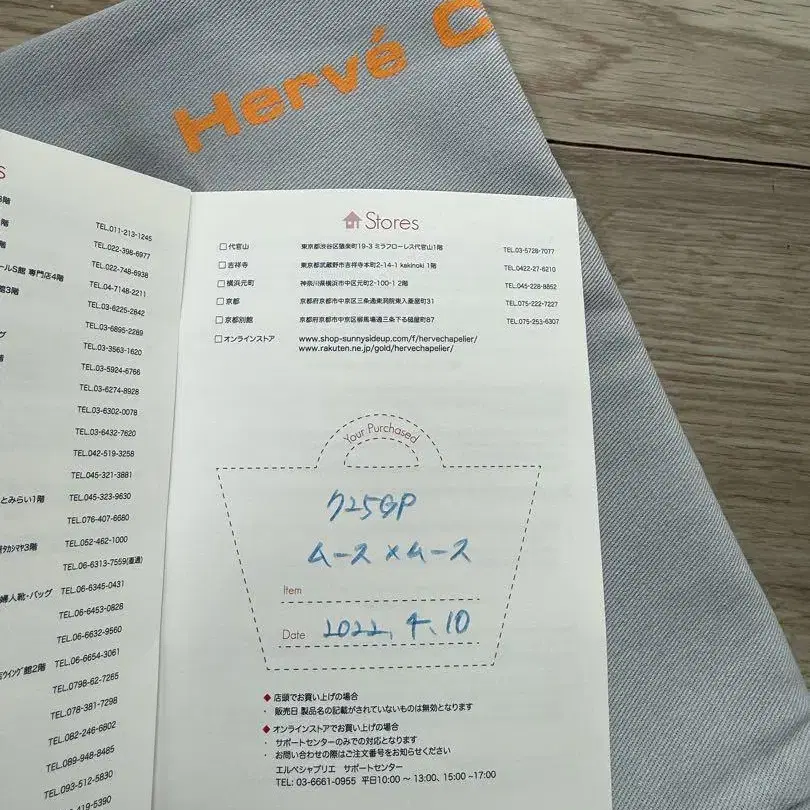 Hervé C
S
階
階 TEL.011-213-1245
階 TEL.022-396-6977
TEL.022-748-6938
ールS館 専門店4階 TEL.04-7148-2211
館3階 TEL.03-6225-2842
TEL.03-6895-2289
グ TEL.03-3563-1620
階 TEL.03-5924-6766
TEL.03-6274-8928
TEL.03-6302-0078
TEL.03-6432-7620
TEL.042-519-3258
TEL.045-321-3881
とみらい1階 TEL.045-323-9630
TEL.076-407-6680
タカシマヤ3階 TEL.052-462-1000
TEL.06-6313-7559(直通)
婦人靴・バッグ TEL.06-6345-0431
TEL.06-6453-0828
TEL.06-6632-9560
ウイング館2階 TEL.06-6654-3061
TEL.0798-62-7265
TEL.078-381-7298
TEL.082-246-6802
TEL.089-948-8485
TEL.093-512-5830
419-5390
Stores
□代官山 東京都渋谷区猿楽町19-3 ミラフローレス代官山1階 TEL.03-5728-7077
□吉祥寺 東京都武蔵野市吉祥寺本町2-14-1 kakinoki 1階 TEL.0422-27-6210
□横浜元町 神奈川県横浜市中区元町2-100-1 2階 TEL.045-228-8852
□京都 京都府京都市中京区三条通東洞院東入菱屋町31 TEL.075-222-7227
□京都別館 京都府京都市中京区柳馬場通三条下る槌屋町87 TEL.075-253-6307
□オンラインストア www.shop-sunnysideup.com/f/hervechapelier/
www.rakuten.ne.jp/gold/hervechapelier/
Your Purchased
725GP
ムース×ムース
Item
Date 2022, 4, 10
◆店頭でお買い上げの場合
・ 販売日 製品名の記載がされていないものは無効となります
◆オンラインストアでお買い上げの場合
・ サポートセンターのみでの対応となります
・ お問い合わせの際はご注文番号をお知らせください
エルベシャプリエ サポートセンター
TEL: 03-6661-0955 平日10:00 ～ 13:00、15:00 ~17:00